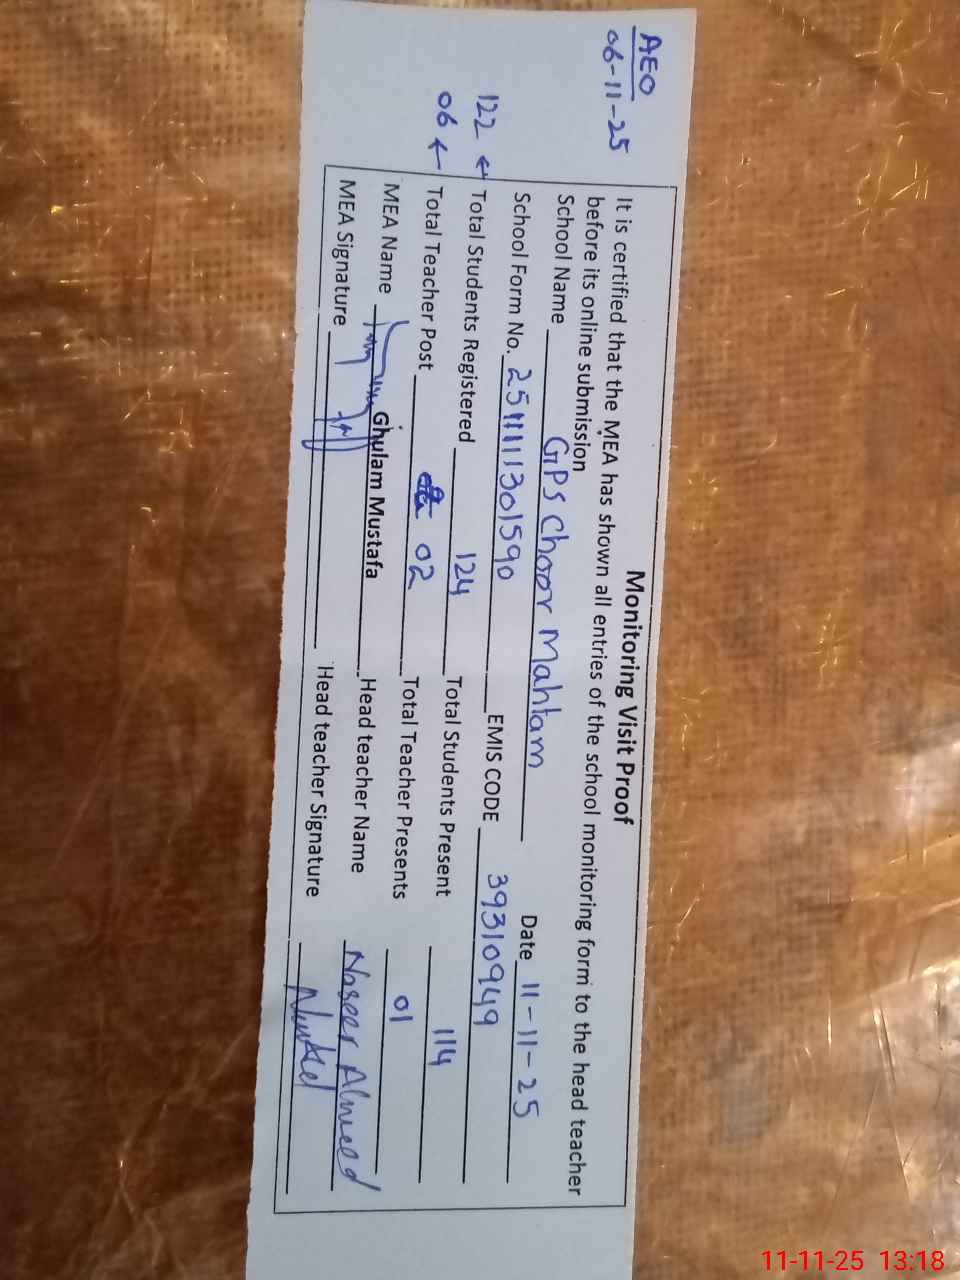 AEO
06-11-25
Monitoring Visit Proof
It is certified that the MEA has shown all entries of the school monitoring form to the head teacher
before its online submission
School Name GPS Choor Mahtam Date 11-11-25
School Form No. 2511111301590 EMIS CODE 39310949
122 ← Total Students Registered 124 Total Students Present 114
06 ← Total Teacher Post 02 Total Teacher Presents 01
MEA Name Ghulam Mustafa Head teacher Name Naseer Ahmed
MEA Signature Head teacher Signature
11-11-25 13:18